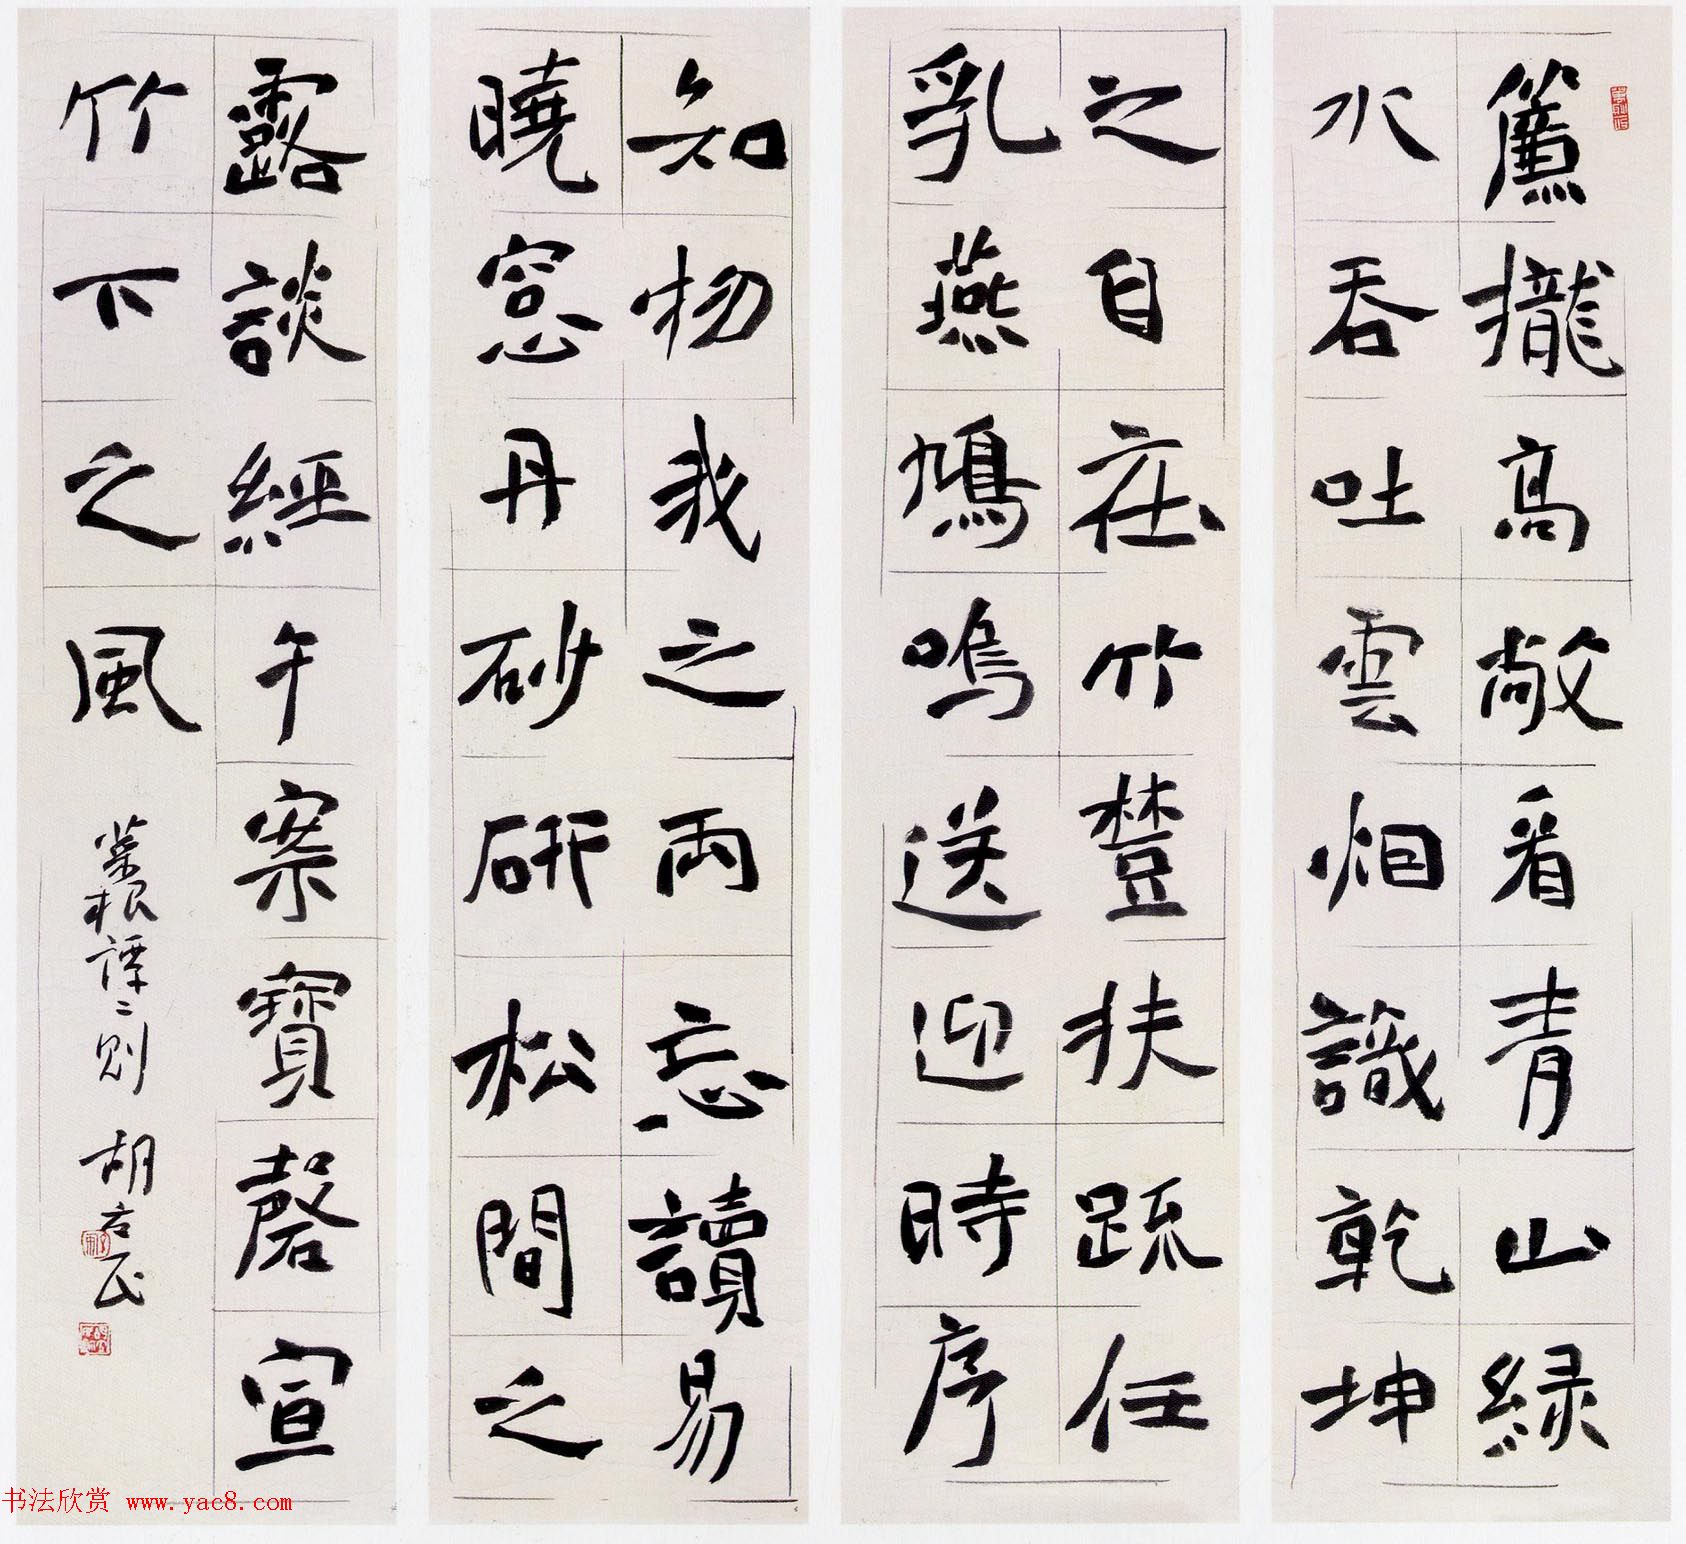 簾攏高敞看青山緑
水吞吐雲烟識乾坤
之自在竹樹扶疏任
乳燕鳩鳴送迎時序
知物我之兩忘讀易
曉窓丹砂研松間之
露談經午案寶磬宣
竹下之風
菜根譚二則 胡民
书法欣赏 www.yac8.com